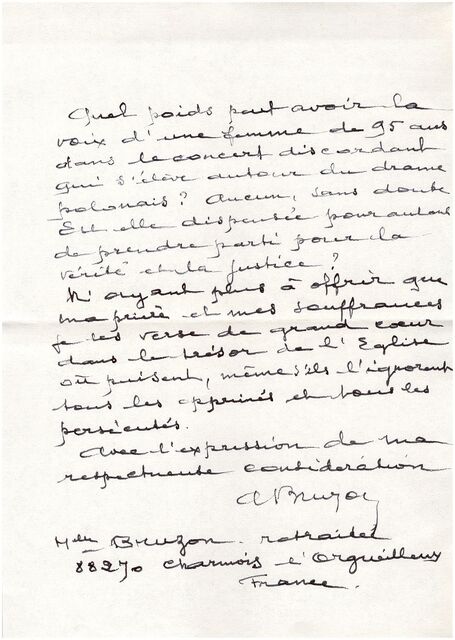 Quel poids peut avoir la
voix d'une femme de 95 ans
dans le concert discordant
qui s'élève autour du drame
polonais? Aucun, sans doute
Est elle dispensée pour autant
de prendre parti pour la
vérité et la justice?
N'ayant plus à offrir que
ma prière et mes souffrances
je les verse de grand cœur
dans le trésor de l'Eglise
où puisent, même s'ils l'ignorent
tous les opprimés et tous les
persécutés.
Avec l'expression de ma
respectueuse considération
Bruzon
Bruzon retraitée
88270 Charmois l'Orgueilleux
France.